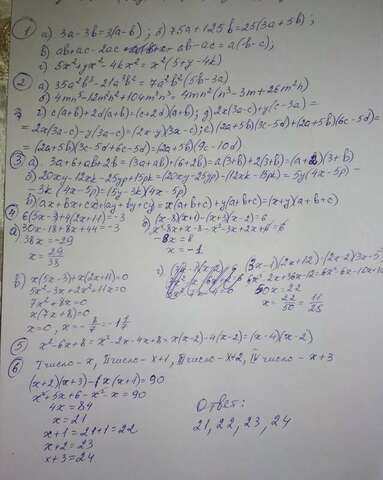 ① а) 3a-3b=3(a-b); б) 75a+125b=25(3a+5b);
в) ab+ac-2ac+ab-ac=a(b-c);
г) 5x²+yx²-4kx²=x²(5+y-4k)
② а) 35a²b³-21a³b²=7a²b²(5b-3a)
б) 4mn⁵-12m²n²+104m³n³=4mn²(n³-3m+26m²n)
г) c(a+b)+2d(a+b)=(c+2d)(a+b); д) 2x(3a-c)+y(c-3a)=
=2x(3a-c)-y(3a-c)=(2x-y)(3a-c); е) (2a+5b)(3c-5d)+(2a+5b)(6c-5d)=
=(2a+5b)(3c-5d+6c-5d)=(2a+5b)(9c-10d)
③ а) 3a+6+ab+2b=(3a+ab)+(6+2b)=a(3+b)+2(3+b)=(a+2)(3+b)
б) 20xy-12xk-25yp+15pk=(20xy-25yp)-(12xk-15pk)=5y(4x-5p)-
-3k(4x-5p)=(5y-3k)(4x-5p)
в) ax+bx+cx+(ay+by+cy)=x(a+b+c)+y(a+b+c)=(x+y)(a+b+c)
④ 6(5x-3)+4(2x+11)=-3
а) 30x-18+8x+44=-3
38x=-29
x=29/38
б) (x-8)(x+1)-(x+3)(x-2)=6
-8x=8
x=-1
в) x(5x-3)+x(2x+11)=0
5x²-3x+2x²+11x=0
7x²+8x=0
x(7x+8)=0
x=0, x=-8/7=-1 1/7
г) (3x-1)(2x+12)-(2x-2)(3x-5)
50x=22
x=22/50=11/25
⑤ x²-6x+8=x²-2x-4x+8=x(x-2)-4(x-2)=(x-4)(x-2)
⑥ I число-x, II число-x+1, III число-x+2, IV число-x+3
(x+2)(x+3)-x(x+1)=90
x²+5x+6-x²-x=90
4x=84
x=21
x+1=21+1=22
x+2=23
x+3=24
Ответ:
21, 22, 23, 24